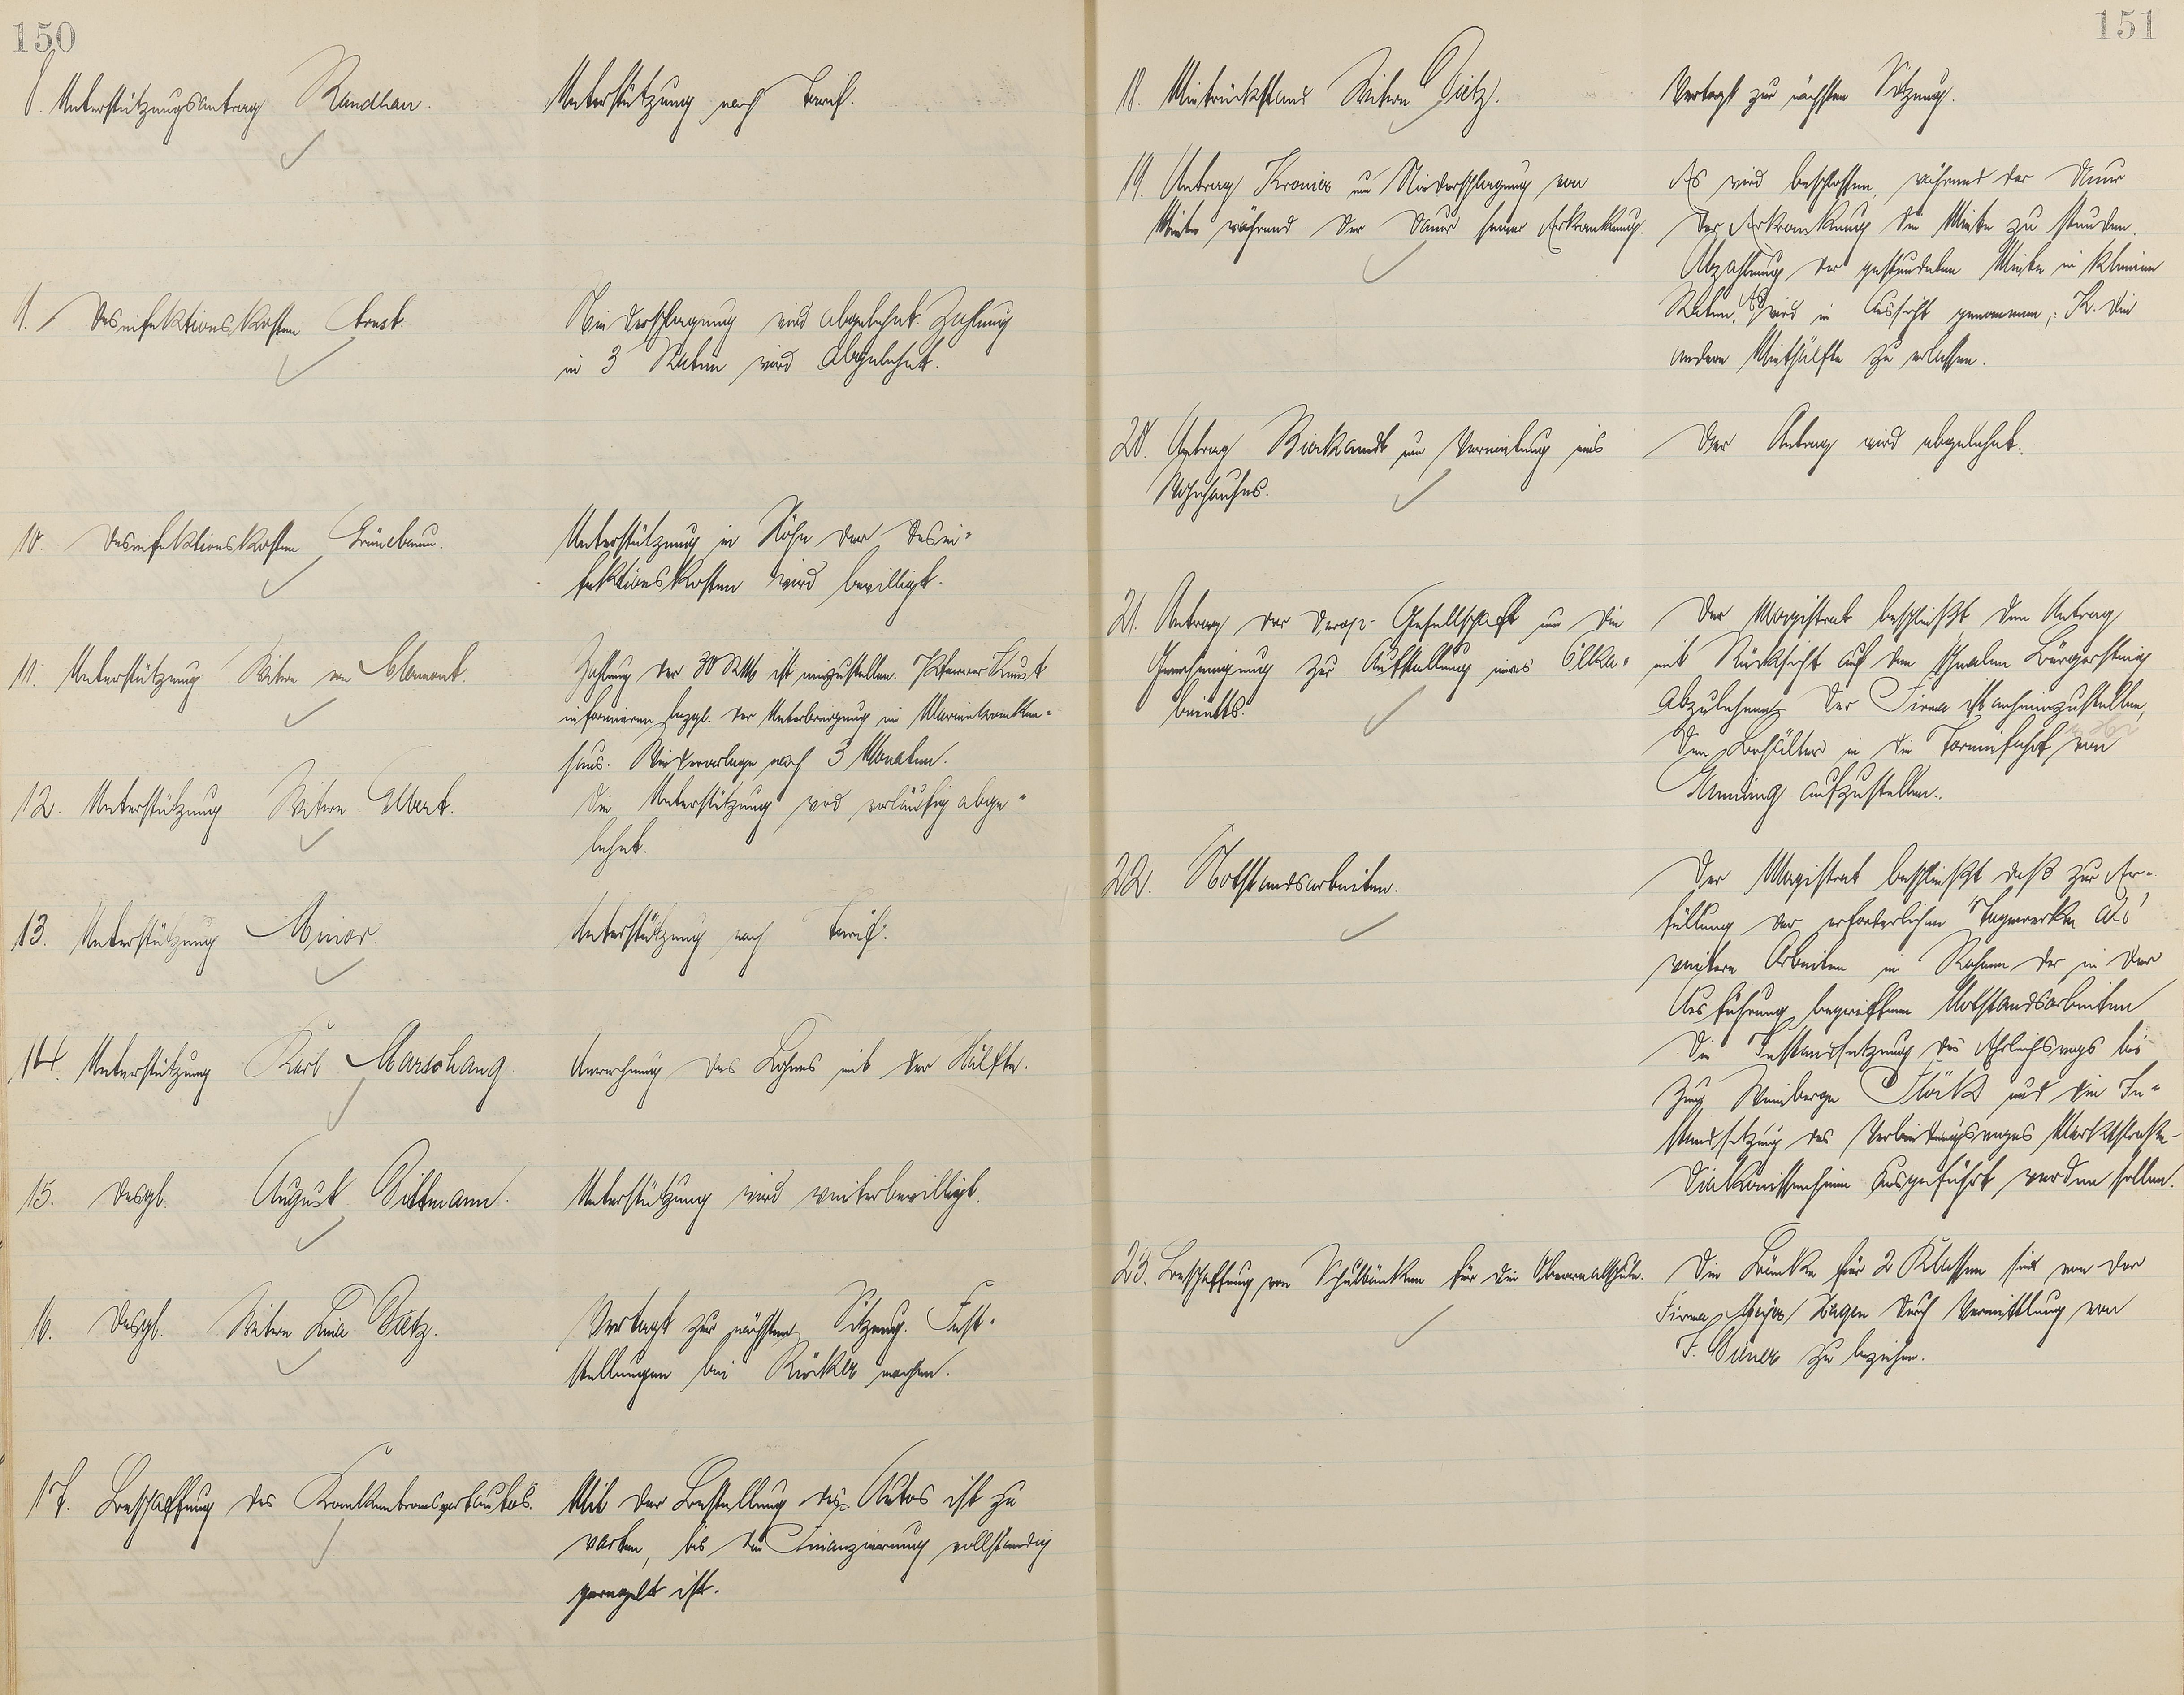 150
8. Unterstützungsantrag Randhan.
Unterstützung nach Tarif.
9. Desinfektionskosten Ernst.
Niederschlagung wird abgelehnt. Zahlung
in 3 Raten wird abgelehnt.
10. Desinfektionskosten Grünebaum.
Unterstützung in Höhe der Desin-
fektionskosten wird bewilligt.
11. Unterstützung Witwe von Clement.
Zahlung der 30 RM ist einzustellen. Pfarrer Kunst
informieren bezgl. der Unterbringung im Marienkranken-
haus. Wiedervorlage nach 3 Monaten.
12. Unterstützung Witwe Elbert.
Die Unterstützung wird vorläufig abge-
lehnt.
13. Unterstützung Minor.
Unterstützung nach Tarif.
14. Unterstützung Karl Marschang.
Anrechnung des Lohnes mit der Hälfte.
15. Desgl. August Dittmann.
Unterstützung wird weiterbewilligt.
16. Desgl. Witwe Lina Dietz.
Vertagt zur nächsten Sitzung. Fest-
stellungen bei Rücker machen.
17. Beschaffung des Krankentransportautos.
Mit der Bestellung des Autos ist zu
warten, bis die Finanzierung vollständig
geregelt ist.
151
18. Mietrückstand Witwe Dietz.
Vertagt zur nächsten Sitzung.
19. Antrag Kronier um Niederschlagung von
Miete während der Dauer seiner Erkrankung.
Es wird beschlossen, während der Dauer
der Erkrankung die Miete zu stunden.
Abzahlung der gestundeten Miete in kleinen
Raten. Es wird in Aussicht genommen, K. die
andere Miethälfte zu erlassen.
20. Antrag Birkandt um Vermietung eines
Wohnhauses.
Der Antrag wird abgelehnt.
21. Antrag der Derop-Gesellschaft um die
Genehmigung zur Aufstellung eines Ölka-
binetts.
Der Magistrat beschließt den Antrag
mit Rücksicht auf den schmalen Bürgersteig
abzulehnen. Der Firma ist anheimzustellen,
den Behälter in die Toreinfahrt von
aufzustellen.
22. Notstandsarbeiten.
Der Magistrat beschließt daß zur Er-
füllung der erforderlichen Tagewerke als
weitere Arbeiten im Rahmen der in der
Ausführung begriffenen Notstandsarbeiten
die Instandsetzung des Ehrlichswegs bis
zum Weinberge Flöck und die In-
standsetzung des Verbindungsweges Marktstraße-
Diakonissenheim ausgeführt werden sollen.
23. Beschaffung von Schulbänken für die Oberrealschule.
Die Bänke für 2 Klassen sind von der
Firma Hagen durch Vermittlung von
F. Diener zu beziehen.